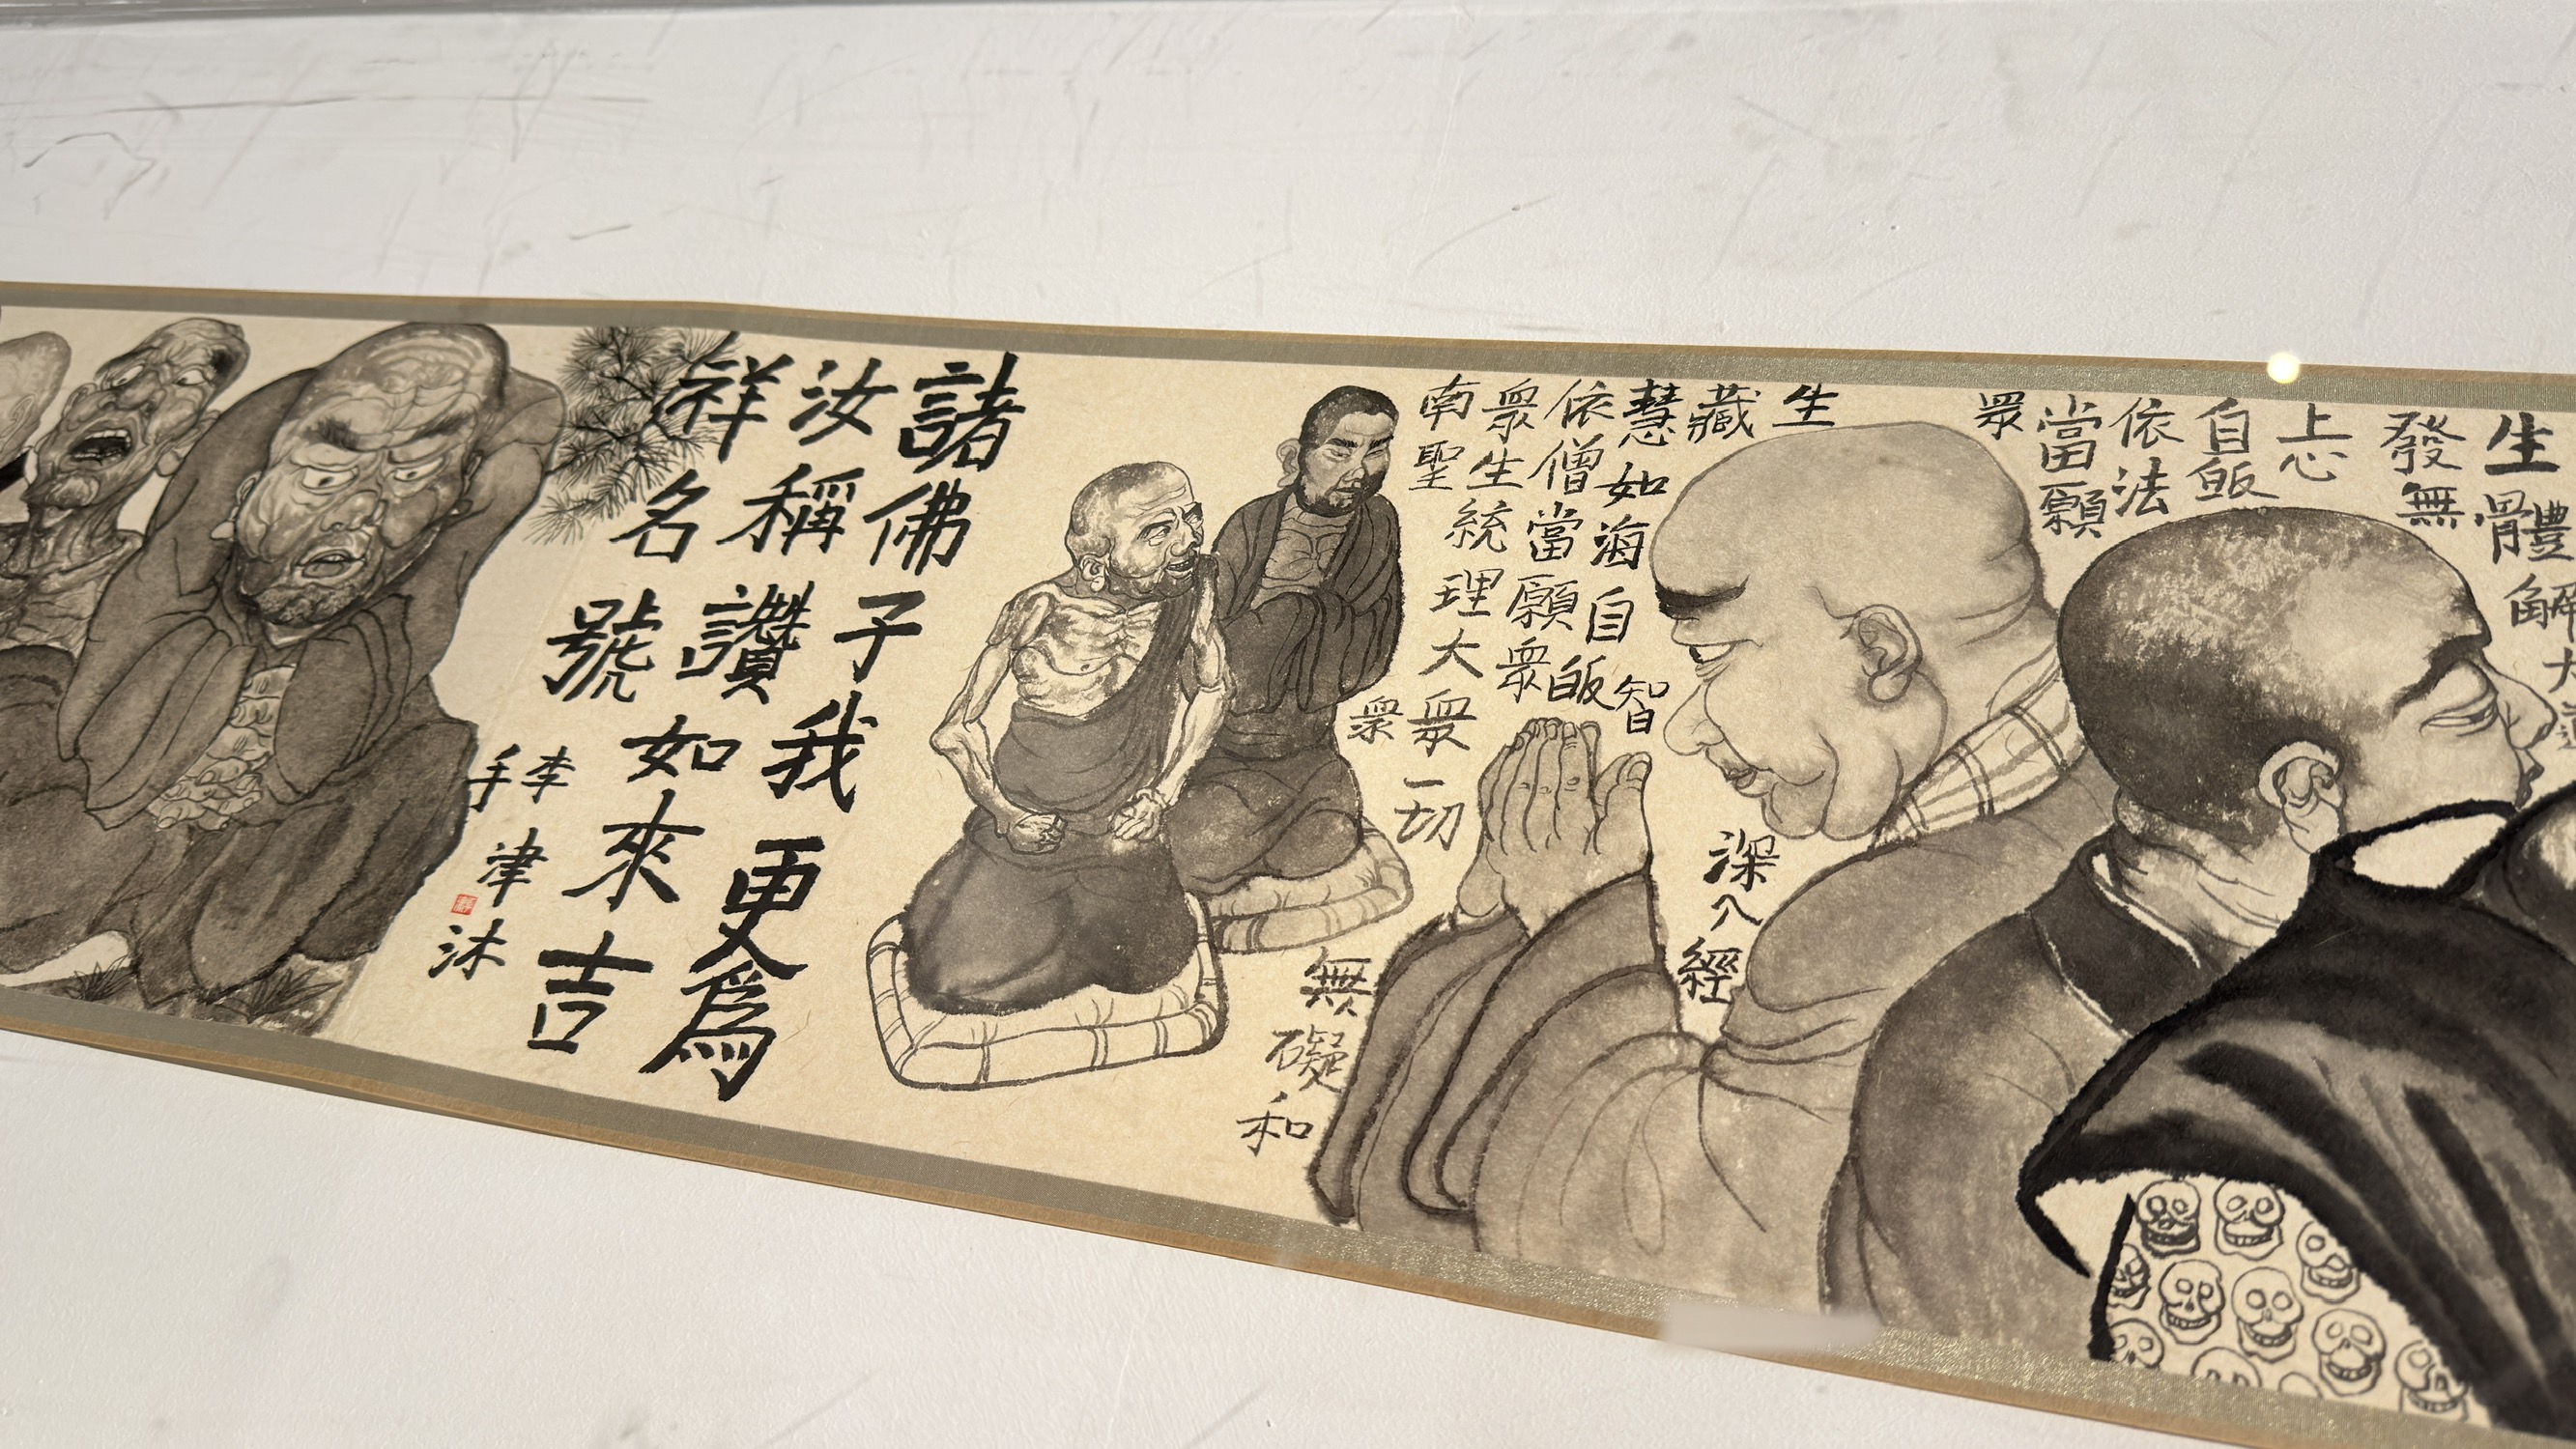 生體解大道
發無
上心
自皈
依法
當願
眾
生
深入經
藏
智
慧如海自皈
依僧當願眾
眾生統理大眾一切
無礙和
南聖眾
諸佛子我更爲
汝稱讚如來吉
祥名號
李津沐
手